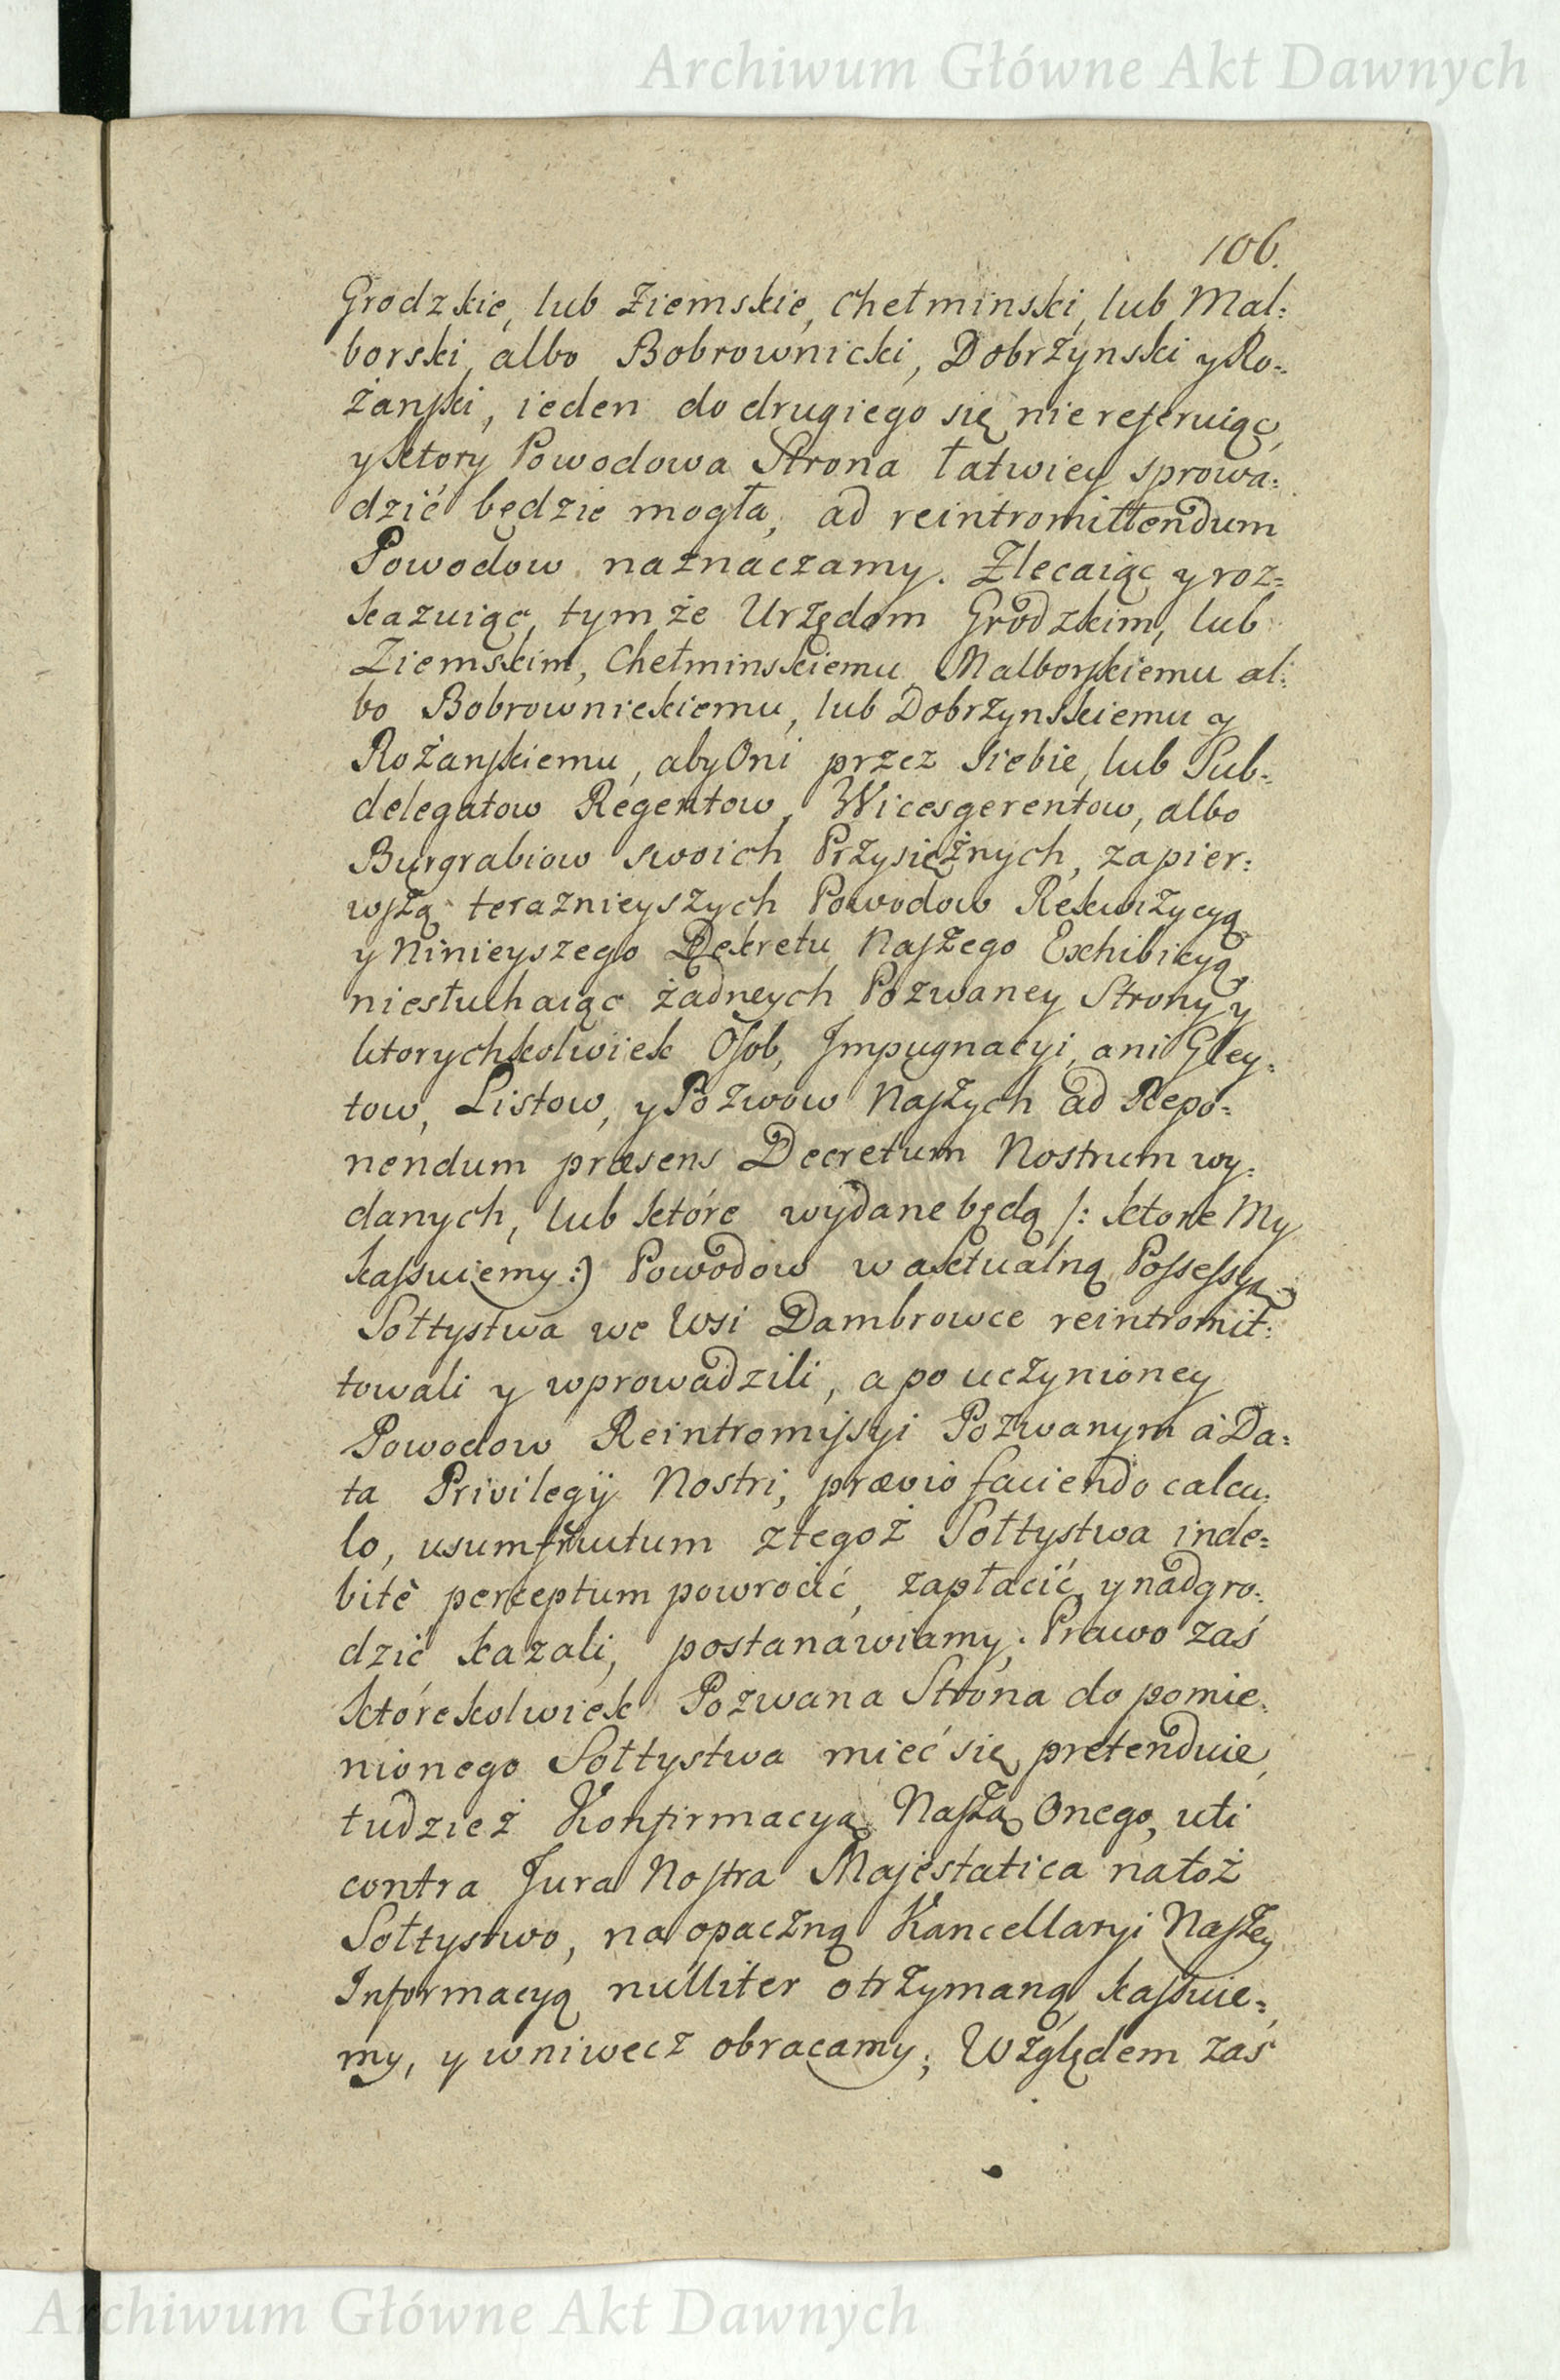 Archiwum Główne Akt Dawnych
106.
Grodzkie, lub Ziemskie, Chełminski, lub Mal:
borski, albo Bobrownicki, Dobrzynski y Ro=
żanski, ieden do drugiego się nie referuiąc,
y ktory Powodowa Strona łatwiey sprowa:
dzić będzie mogła, ad reintromittendum
Powodow naznaczamy. Zlecaiąc y roz=
kazuiąc, tymże Urzędom Grodzkim, lub
Ziemskim, Chełminskiemu, Malborskiemu al:
bo Bobrownickiemu, lub Dobrzynskiemu y
Rożanskiemu, aby Oni przez siebie, lub Sub=
delegatow Regentow, Wicesgerentow, albo
Burgrabiow swoich Przysiężnych, za pier:
wszą teraznieyszych Powodow Rekwizycyą
y Ninieyszego Dekretu Naszego Exhibicyą,
niesłuchaiąc żadneych Pozwaney Strony y
ktorychkolwiek Osob, Impugnacyi, ani Gley:
tow, Listow, y Pozwow Naszych ad Repo=
nendum præsens Decretum Nostrum wy:
danych, lub które wydane będą /: ktore My
kassuiemy :) Powodow w aktualną Possessyą
Sołtystwa we Wsi Dambrowce reintromit:
towali y wprowadzili, a po uczynioney
Powodow Reintromissyi Pozwanym à Da=
ta Privilegij Nostri, prævio faciendo calcu:
lo, usumfructum z tegoż Sołtystwa inde=
bitè perceptum powrocić, zapłacić, y nadgro:
dzić kazali, postanawiamy; Prawo zaś
którekolwiek Pozwana Strona do pomie:
nionego Sołtystwa mieć się pretenduie,
tudzież Konfirmacyą Naszą Onego, uti
contra Jura Nostra Majestatica na toż
Sołtystwo, na opaczną Kancellaryi Naszey
Informacyą nulliter otrzymaną, kassuie=
my, y wniwecz obracamy; Względem zaś
Archiwum Główne Akt Dawnych